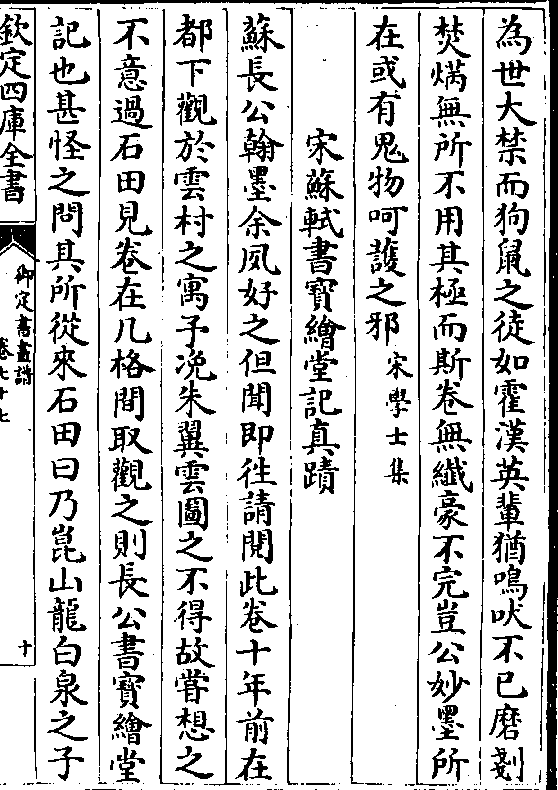 為世大禁而狗鼠之徒如霍漢英輩猶鳴吠不已磨剗
焚爇無所不用其極而斯卷無纎豪不完豈公妙墨所
在或有鬼物呵護之邪宋學士集
宋蘇軾書寶繪堂記真蹟
蘇長公翰墨余夙好之但聞即徃請閱此卷十年前在
都下觀於雲村之寓予凂朱翼雲圖之不得故甞想之
不意過石田見卷在几格間取觀之則長公書寶繪堂
記也甚怪之問其所從來石田曰乃崑山龍白泉之子
欽定四庫全書
御定書畫譜
卷七十七
十